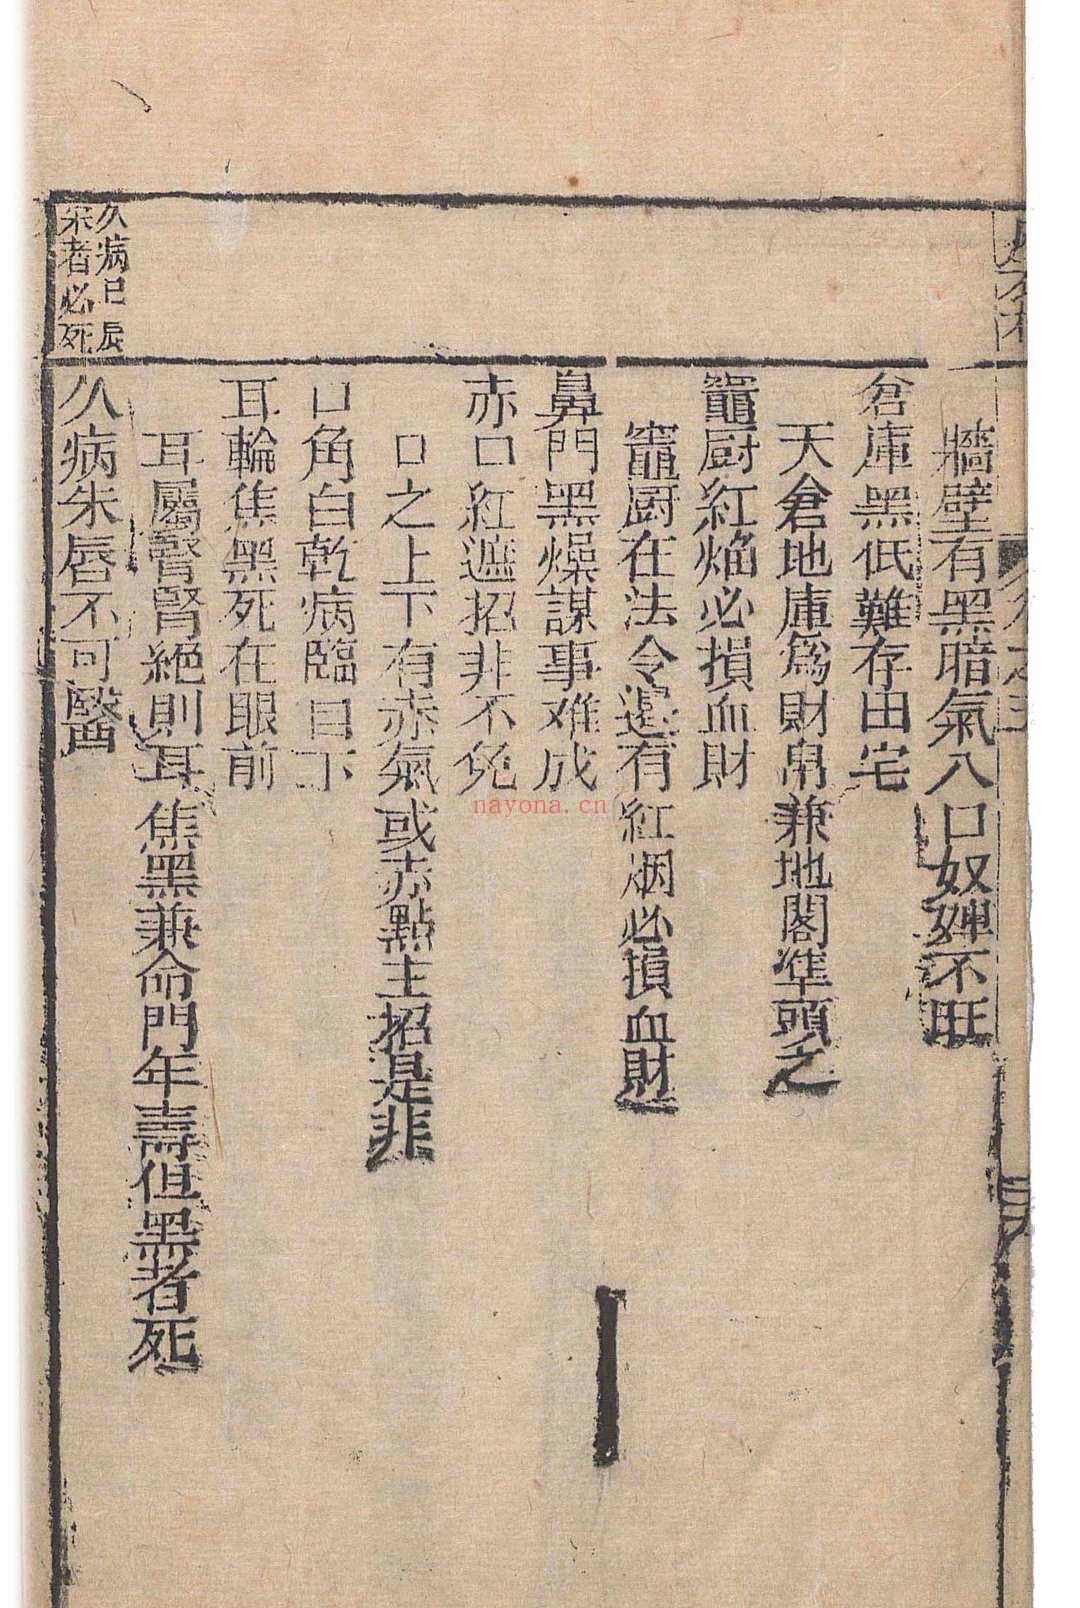 牆壁有黑暗氣人口奴婢不旺
倉庫黑低難存由宅
天倉地庫爲財帛兼地閣準頭之
竈厨紅焰必損血財
竈厨在法令邉有紅烟必損血財
鼻門黑燥謀事难成
赤口紅遮招非不免
口之上下有赤氣或赤點主招是非
口角白乾病臨目下
耳輪焦黑死在眼前
耳屬腎腎絕則耳焦黑兼命門年壽但黑者死
久病朱唇不可醫
久病巳唇
朱者必死
nayona.cn